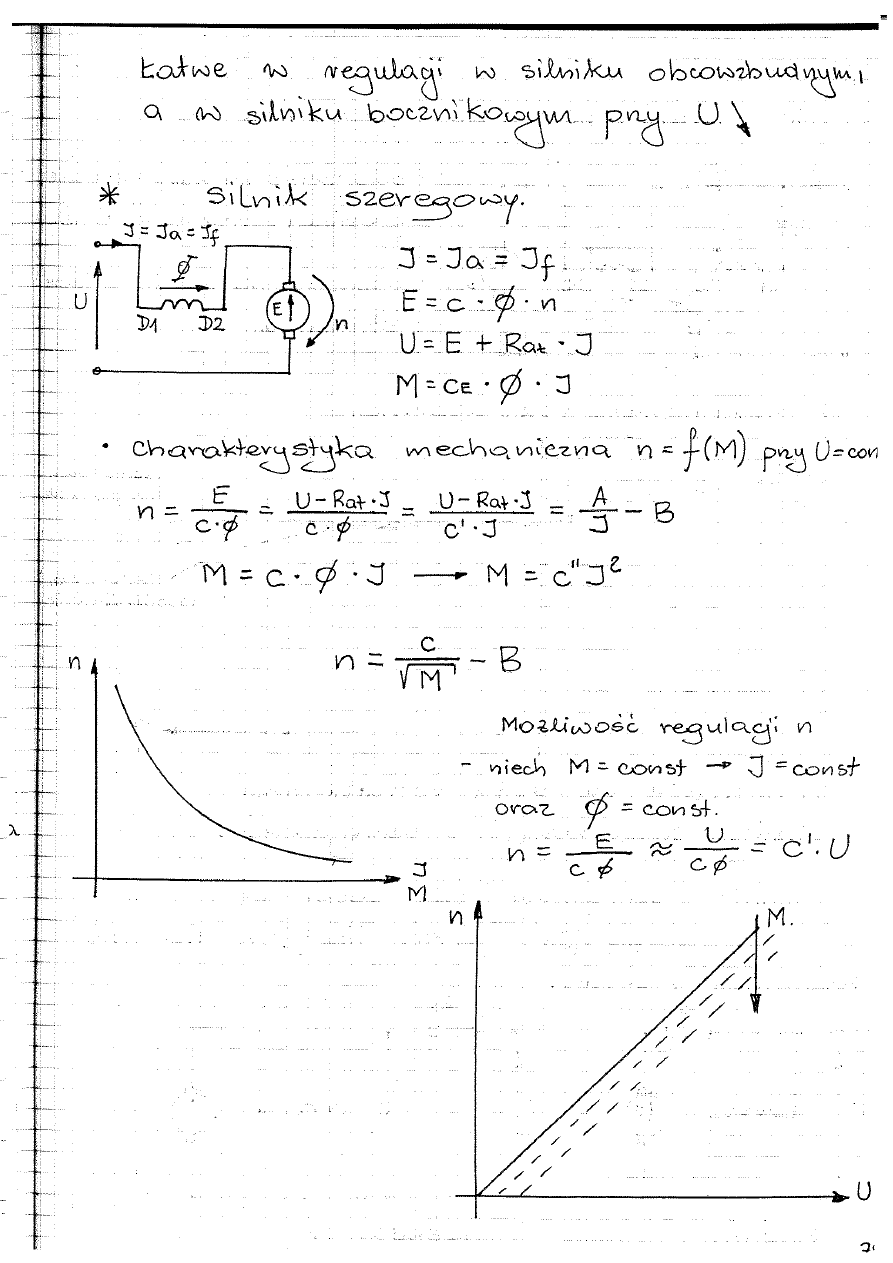 Łatwe w regulagi w silniku obcowzbudnym,
a w silniku bocznikowym przy U ↓
* Silnik szeregowy.
J = Ja = Jf
Φ
U
D1 D2
E
n
J = Ja = Jf
E = c · Φ · n
U = E + Rat · J
M = CE · Φ · J
• charakterystyka mechaniczna n = f(M) przy U = con
n = E / (c·Φ) = (U – Rat·J) / (c·Φ) = (U – Rat·J) / (c'·J) = A / J – B
M = c · Φ · J → M = c"J²
n = c / √M – B
n
J
M
Możliwość regulacji n
- niech M = const → J = const
oraz Φ = const.
n = E / (c Φ) ≈ U / (c Φ) = c'· U
n
M.
U